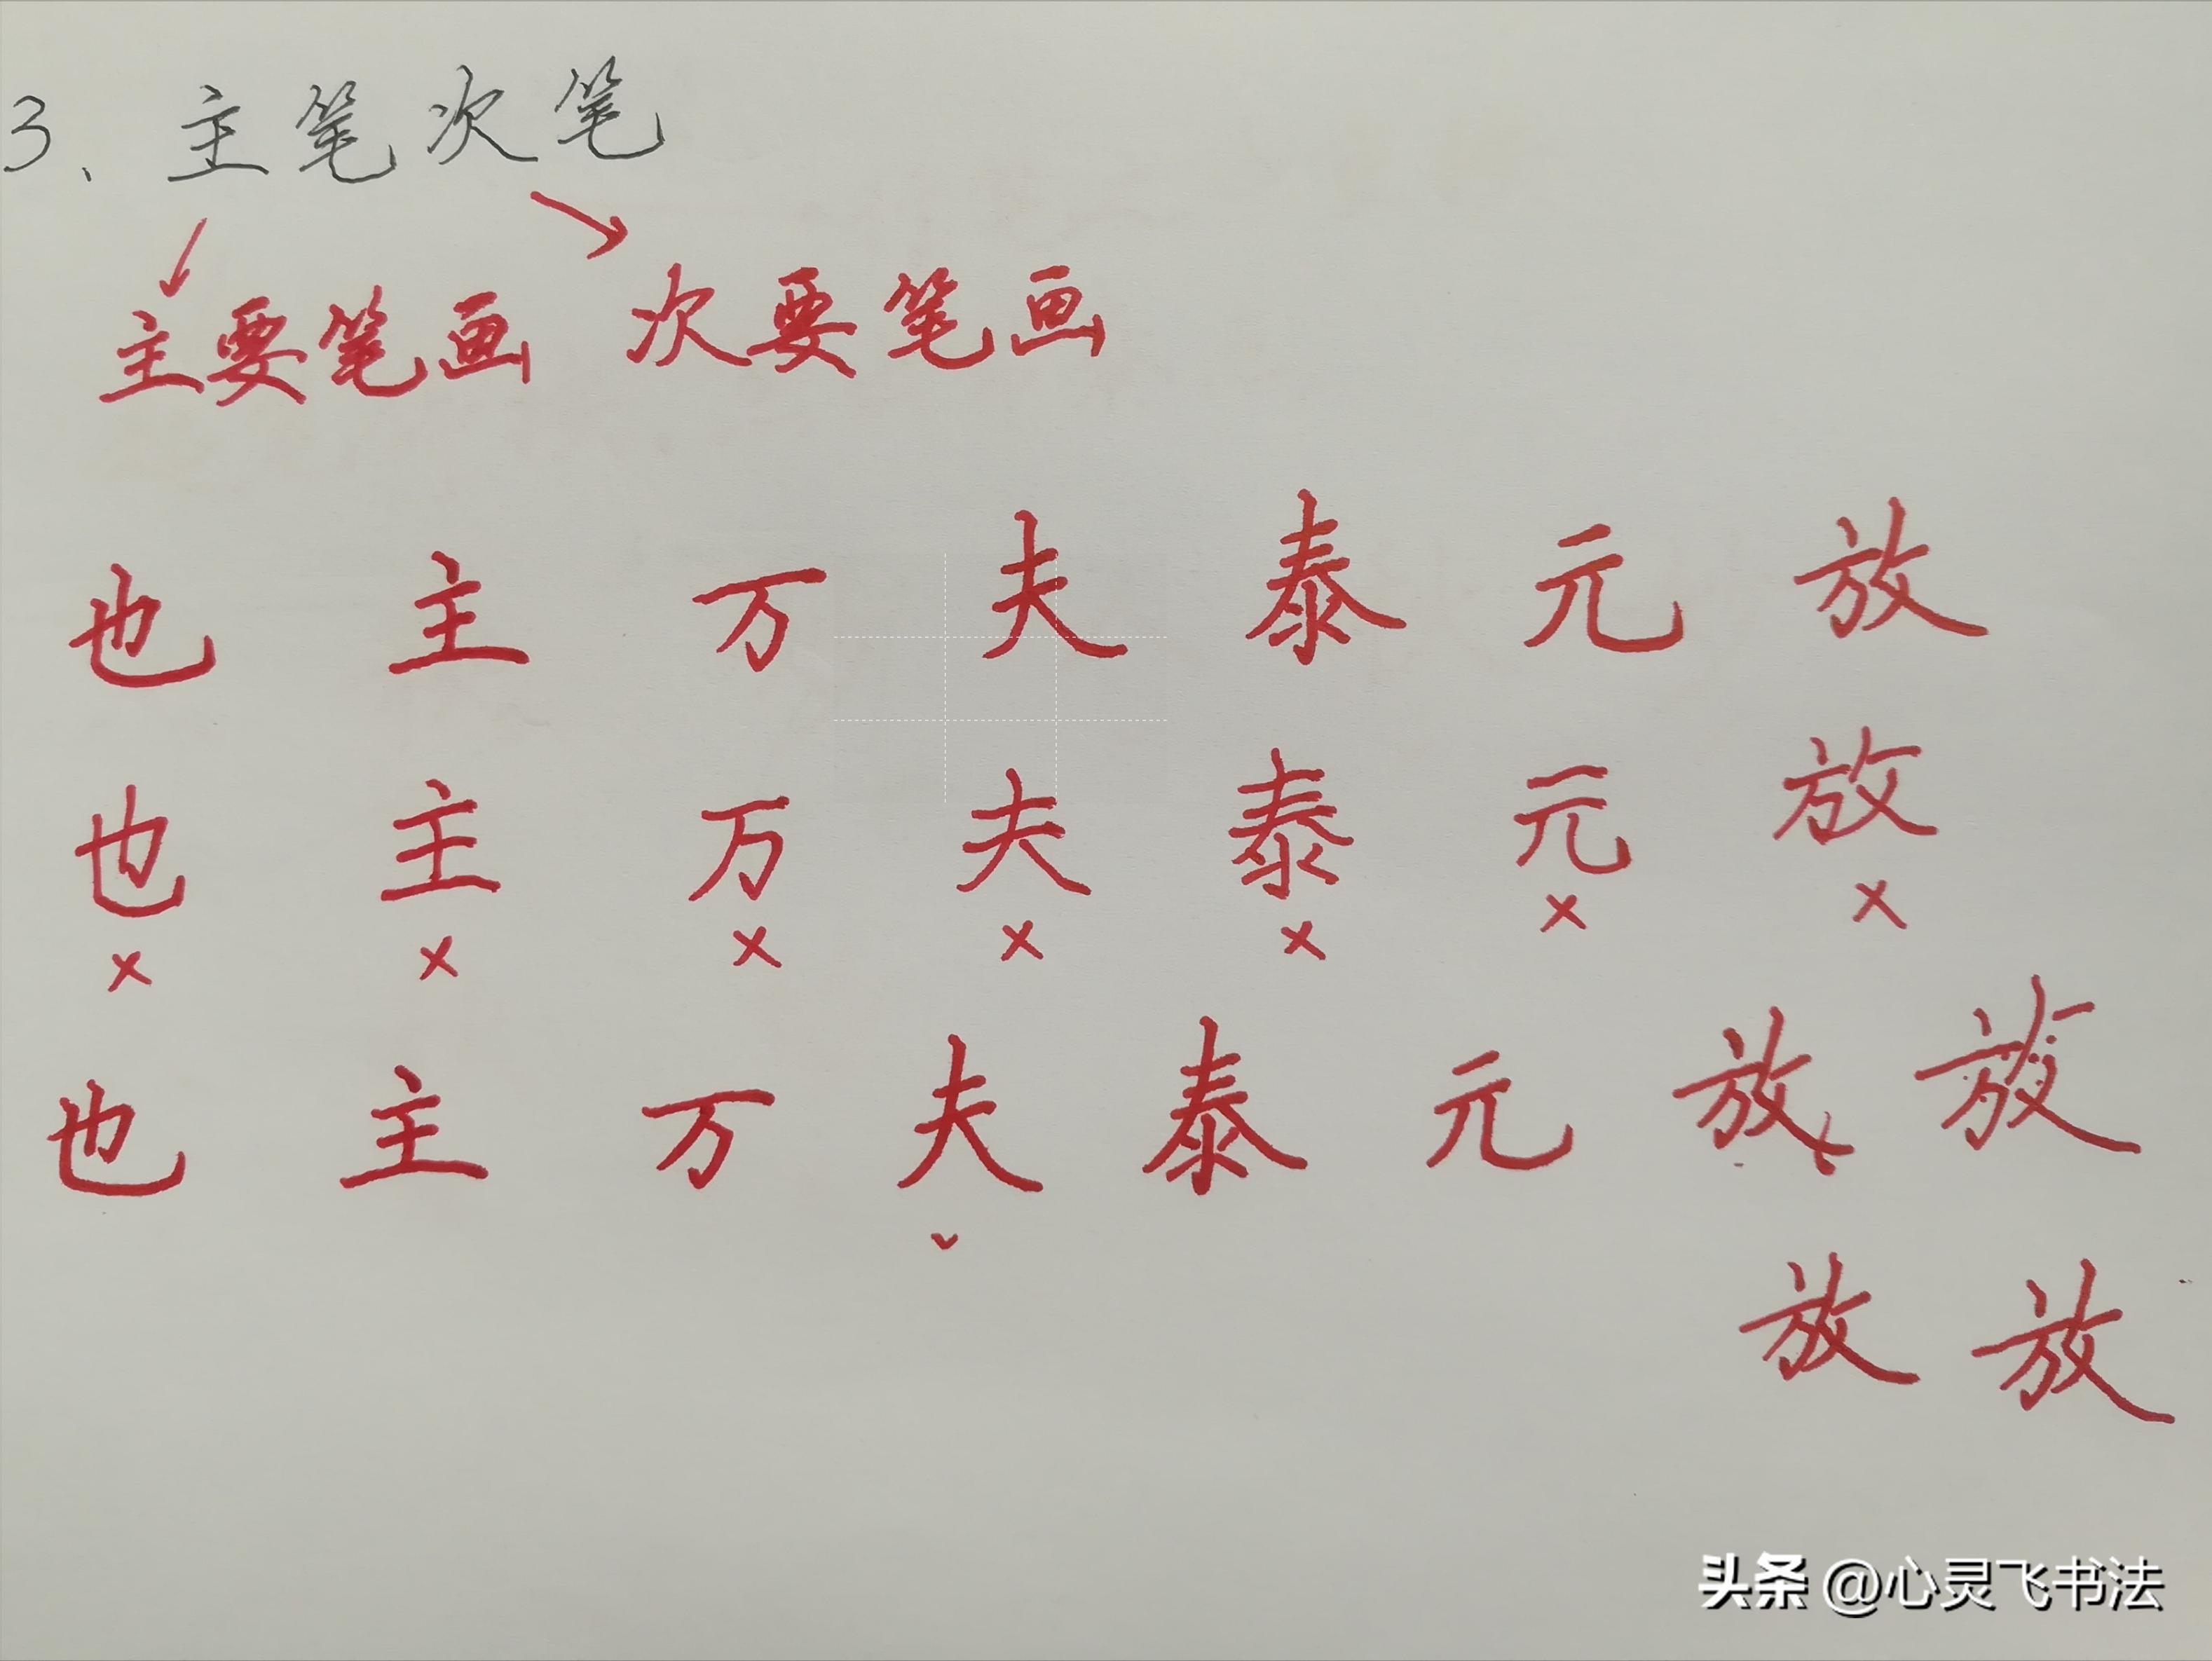 3、主笔次笔
主要笔画 次要笔画
也 主 万 夫 泰 元 放
也 主 万 夫 泰 元 放
× × × × × × ×
也 主 万 夫 泰 元 放 放
放 放
头条 @心灵飞书法